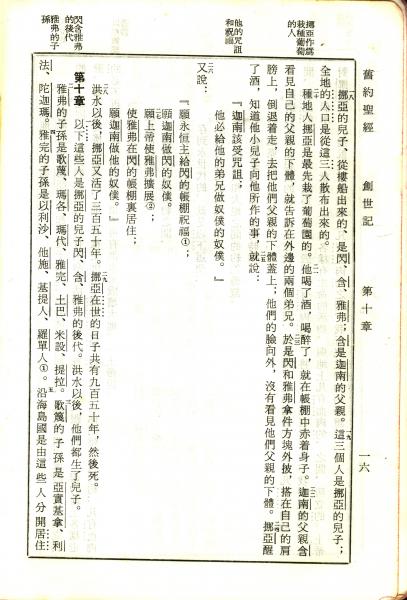 舊約聖經 創世記 第十章 一六
挪亞作爲
栽種葡萄
的人
一八挪亞的兒子、從樓船出來的、是閃、含、雅弗;含是迦南的父親。一九這三個人是挪亞的兒子;
全地的人口是從這三人散布出來的。
二〇種地人挪亞是最先栽了葡萄園的。二一他喝了酒,喝醉了,就在帳棚中赤着身子。二二迦南的父親含
看見自己的父親的下體,就告訴在外邊的兩個弟兄。二三於是閃和雅弗拿件方塊外披,搭在自己的肩
膀上,倒退着走,去把他們父親的下體蓋上;他們的臉向外,沒有看見他們父親的下體。二四挪亞醒
了酒,知道他小兒子向他所作的事,二五就說:
他的咒詛
和祝福
『迦南該受咒詛;
他必給他的弟兄做奴僕的奴僕。』
二六又說:
『願永恆主給閃的帳棚祝福①;
願迦南做閃的奴僕。
二七願上帝使雅弗擴展②;
使雅弗在閃的帳棚裏居住;
願迦南做他的奴僕。』
二八洪水以後,挪亞又活了三百五十年。二九挪亞在世的日子共有九百五十年,然後死。
閃含雅弗
的後代
雅弗的子
孫
第十章 一以下這些人是挪亞的兒子閃、含、雅弗的後代。洪水以後,他們都生了兒子。
二雅弗的子孫是歌篾、瑪各、瑪代、雅完、土巴、米設、提拉。三歌篾的子孫是亞實基拿、利
法、陀迦瑪。四雅完的子孫是以利沙、他施、基提人、羅單人①。五沿海島國是由這些人分開居住